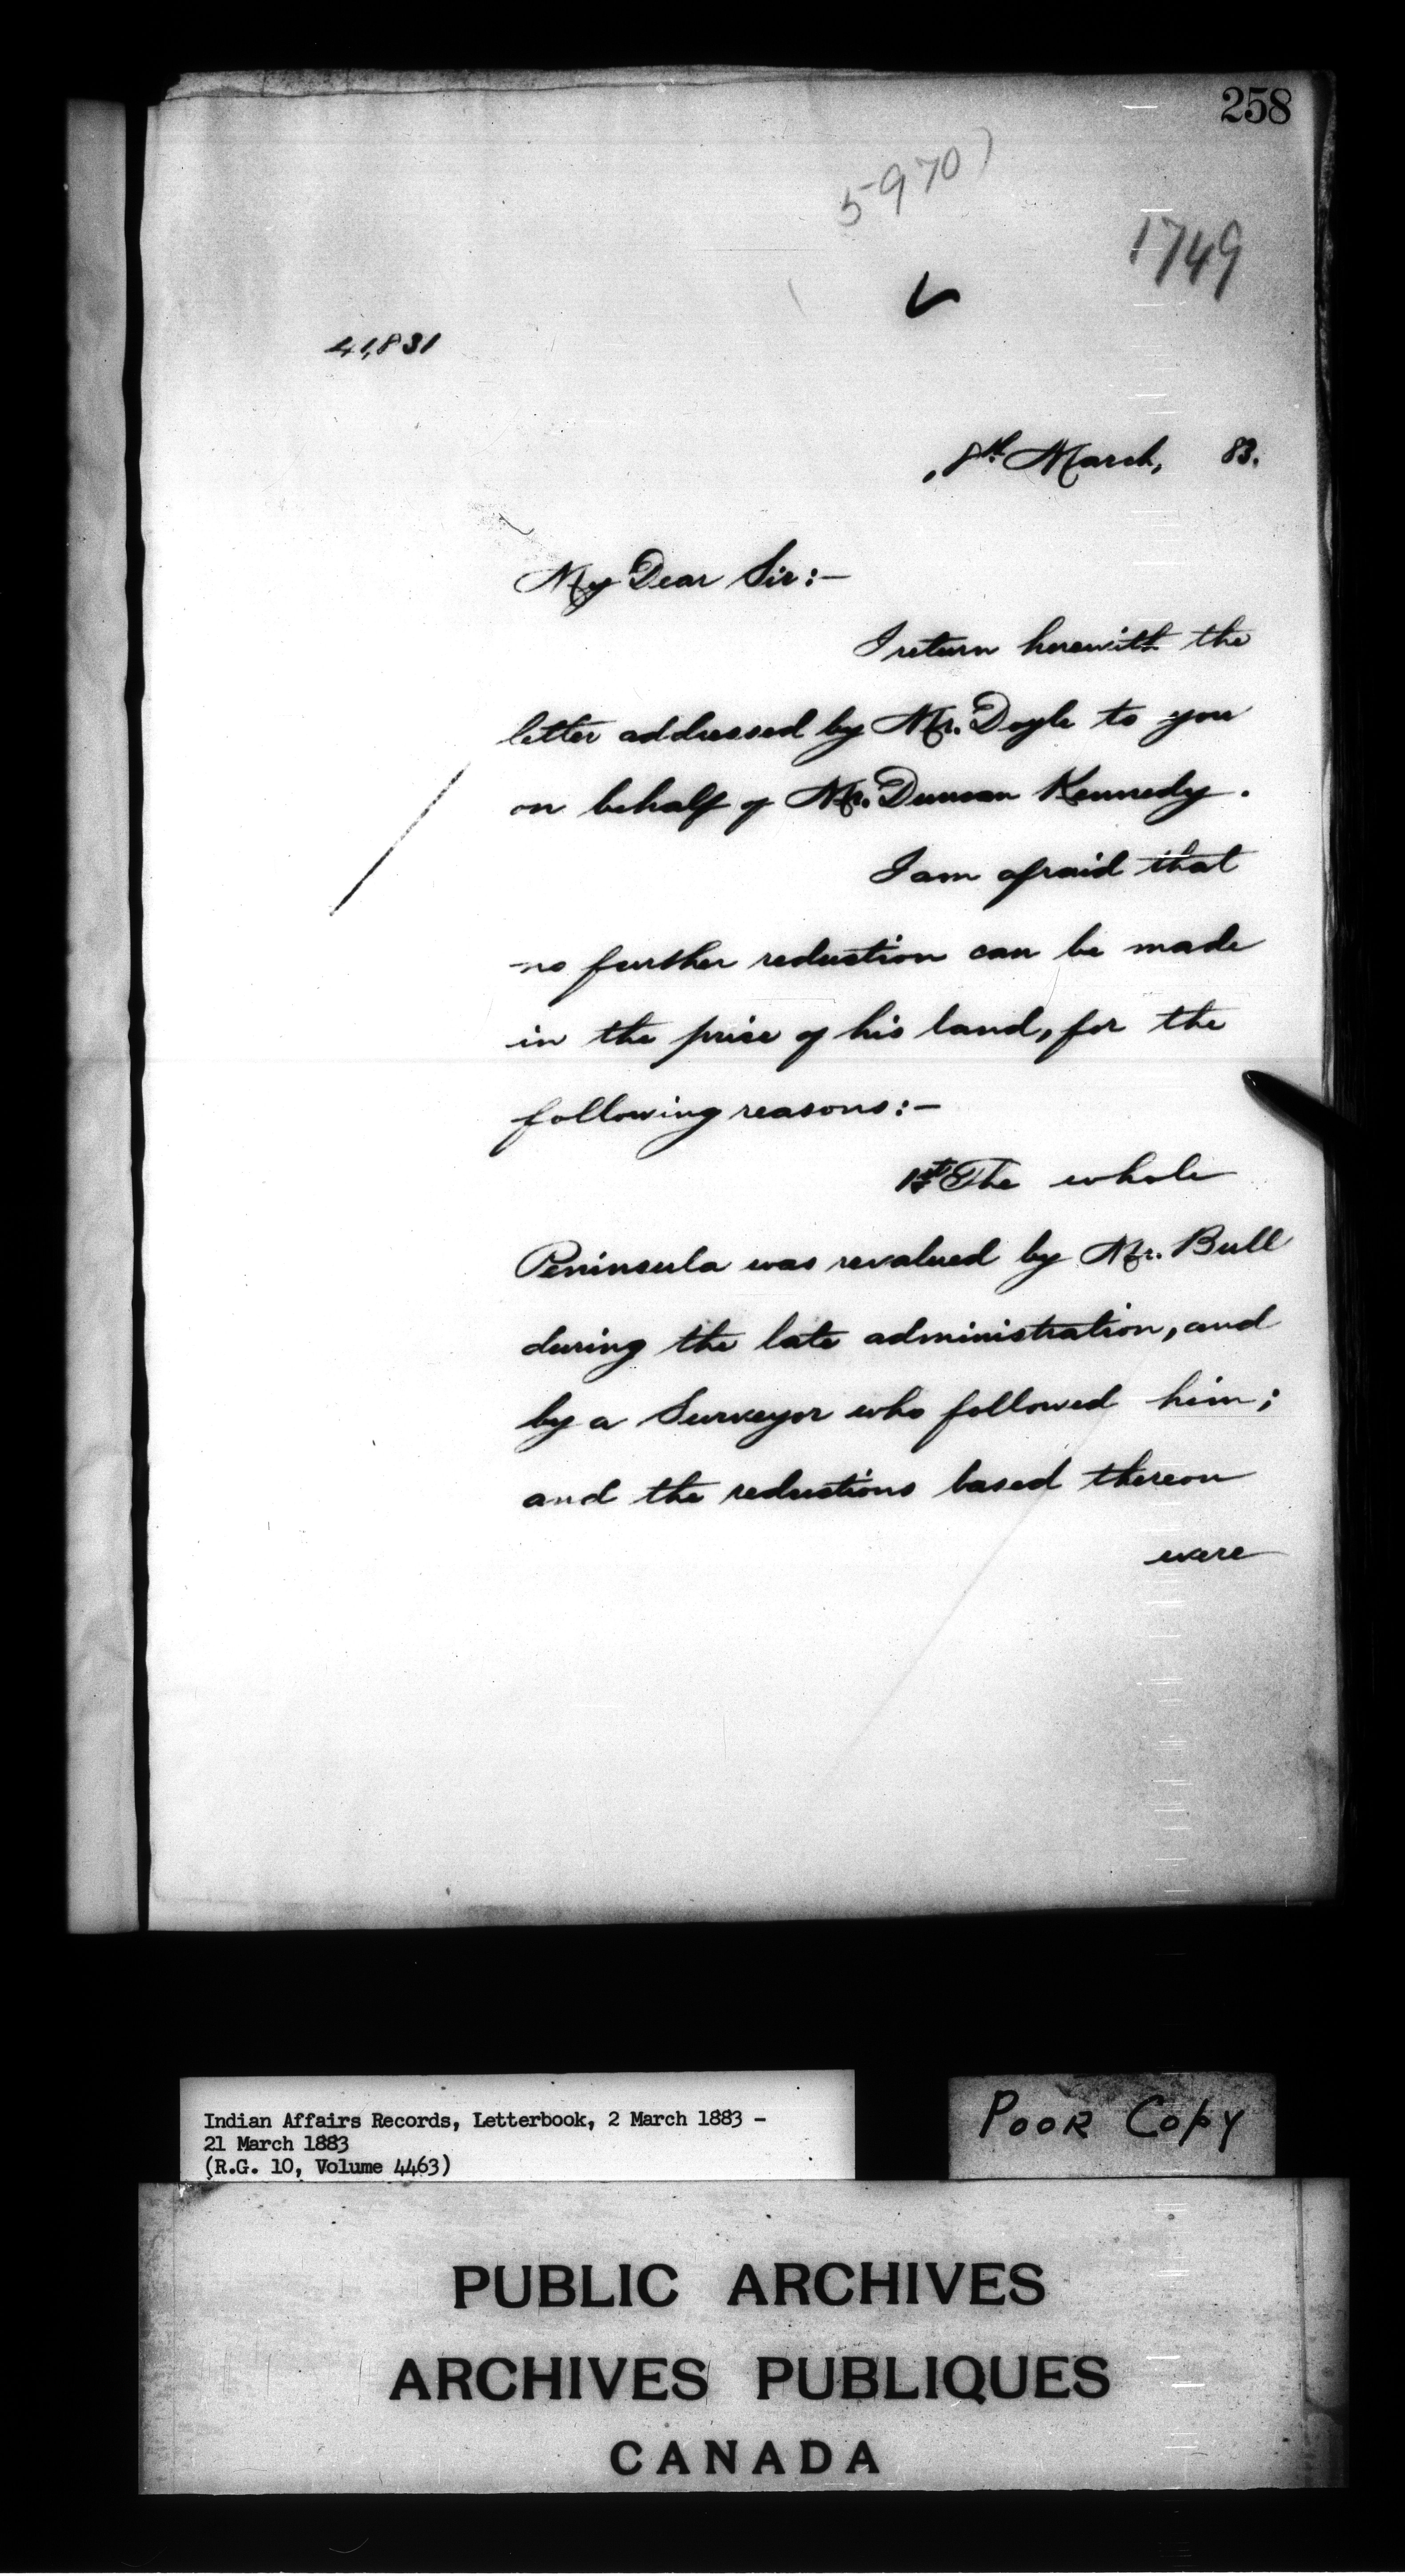 258
5970
1749
41,831
8th March, 83.
My Dear Sir:—
I return herewith the
letter addressed by Mr. Doyle to you
on behalf of Mr. Duncan Kennedy.
I am afraid that
no further reduction can be made
in the price of his land, for the
following reasons:—
1st The whole
Peninsula was revalued by Mr. Bull
during the late administration, and
by a Surveyor who followed him;
and the reductions based thereon
were
Indian Affairs Records, Letterbook, 2 March 1883 -
21 March 1883
(R.G. 10, Volume 4463)
POOR COPY
PUBLIC ARCHIVES
ARCHIVES PUBLIQUES
CANADA